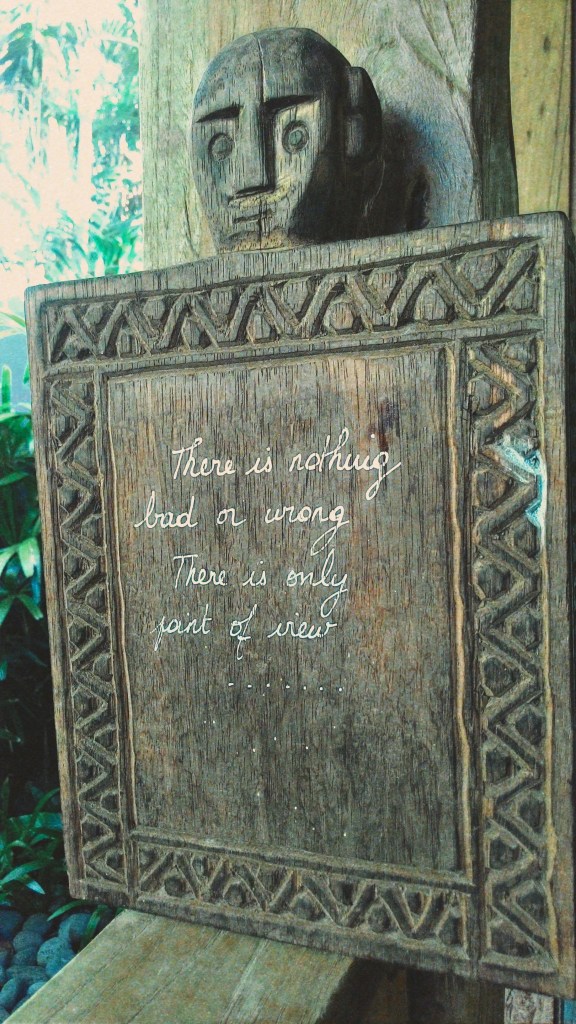 There is nothing
bad or wrong
There is only
point of view
........